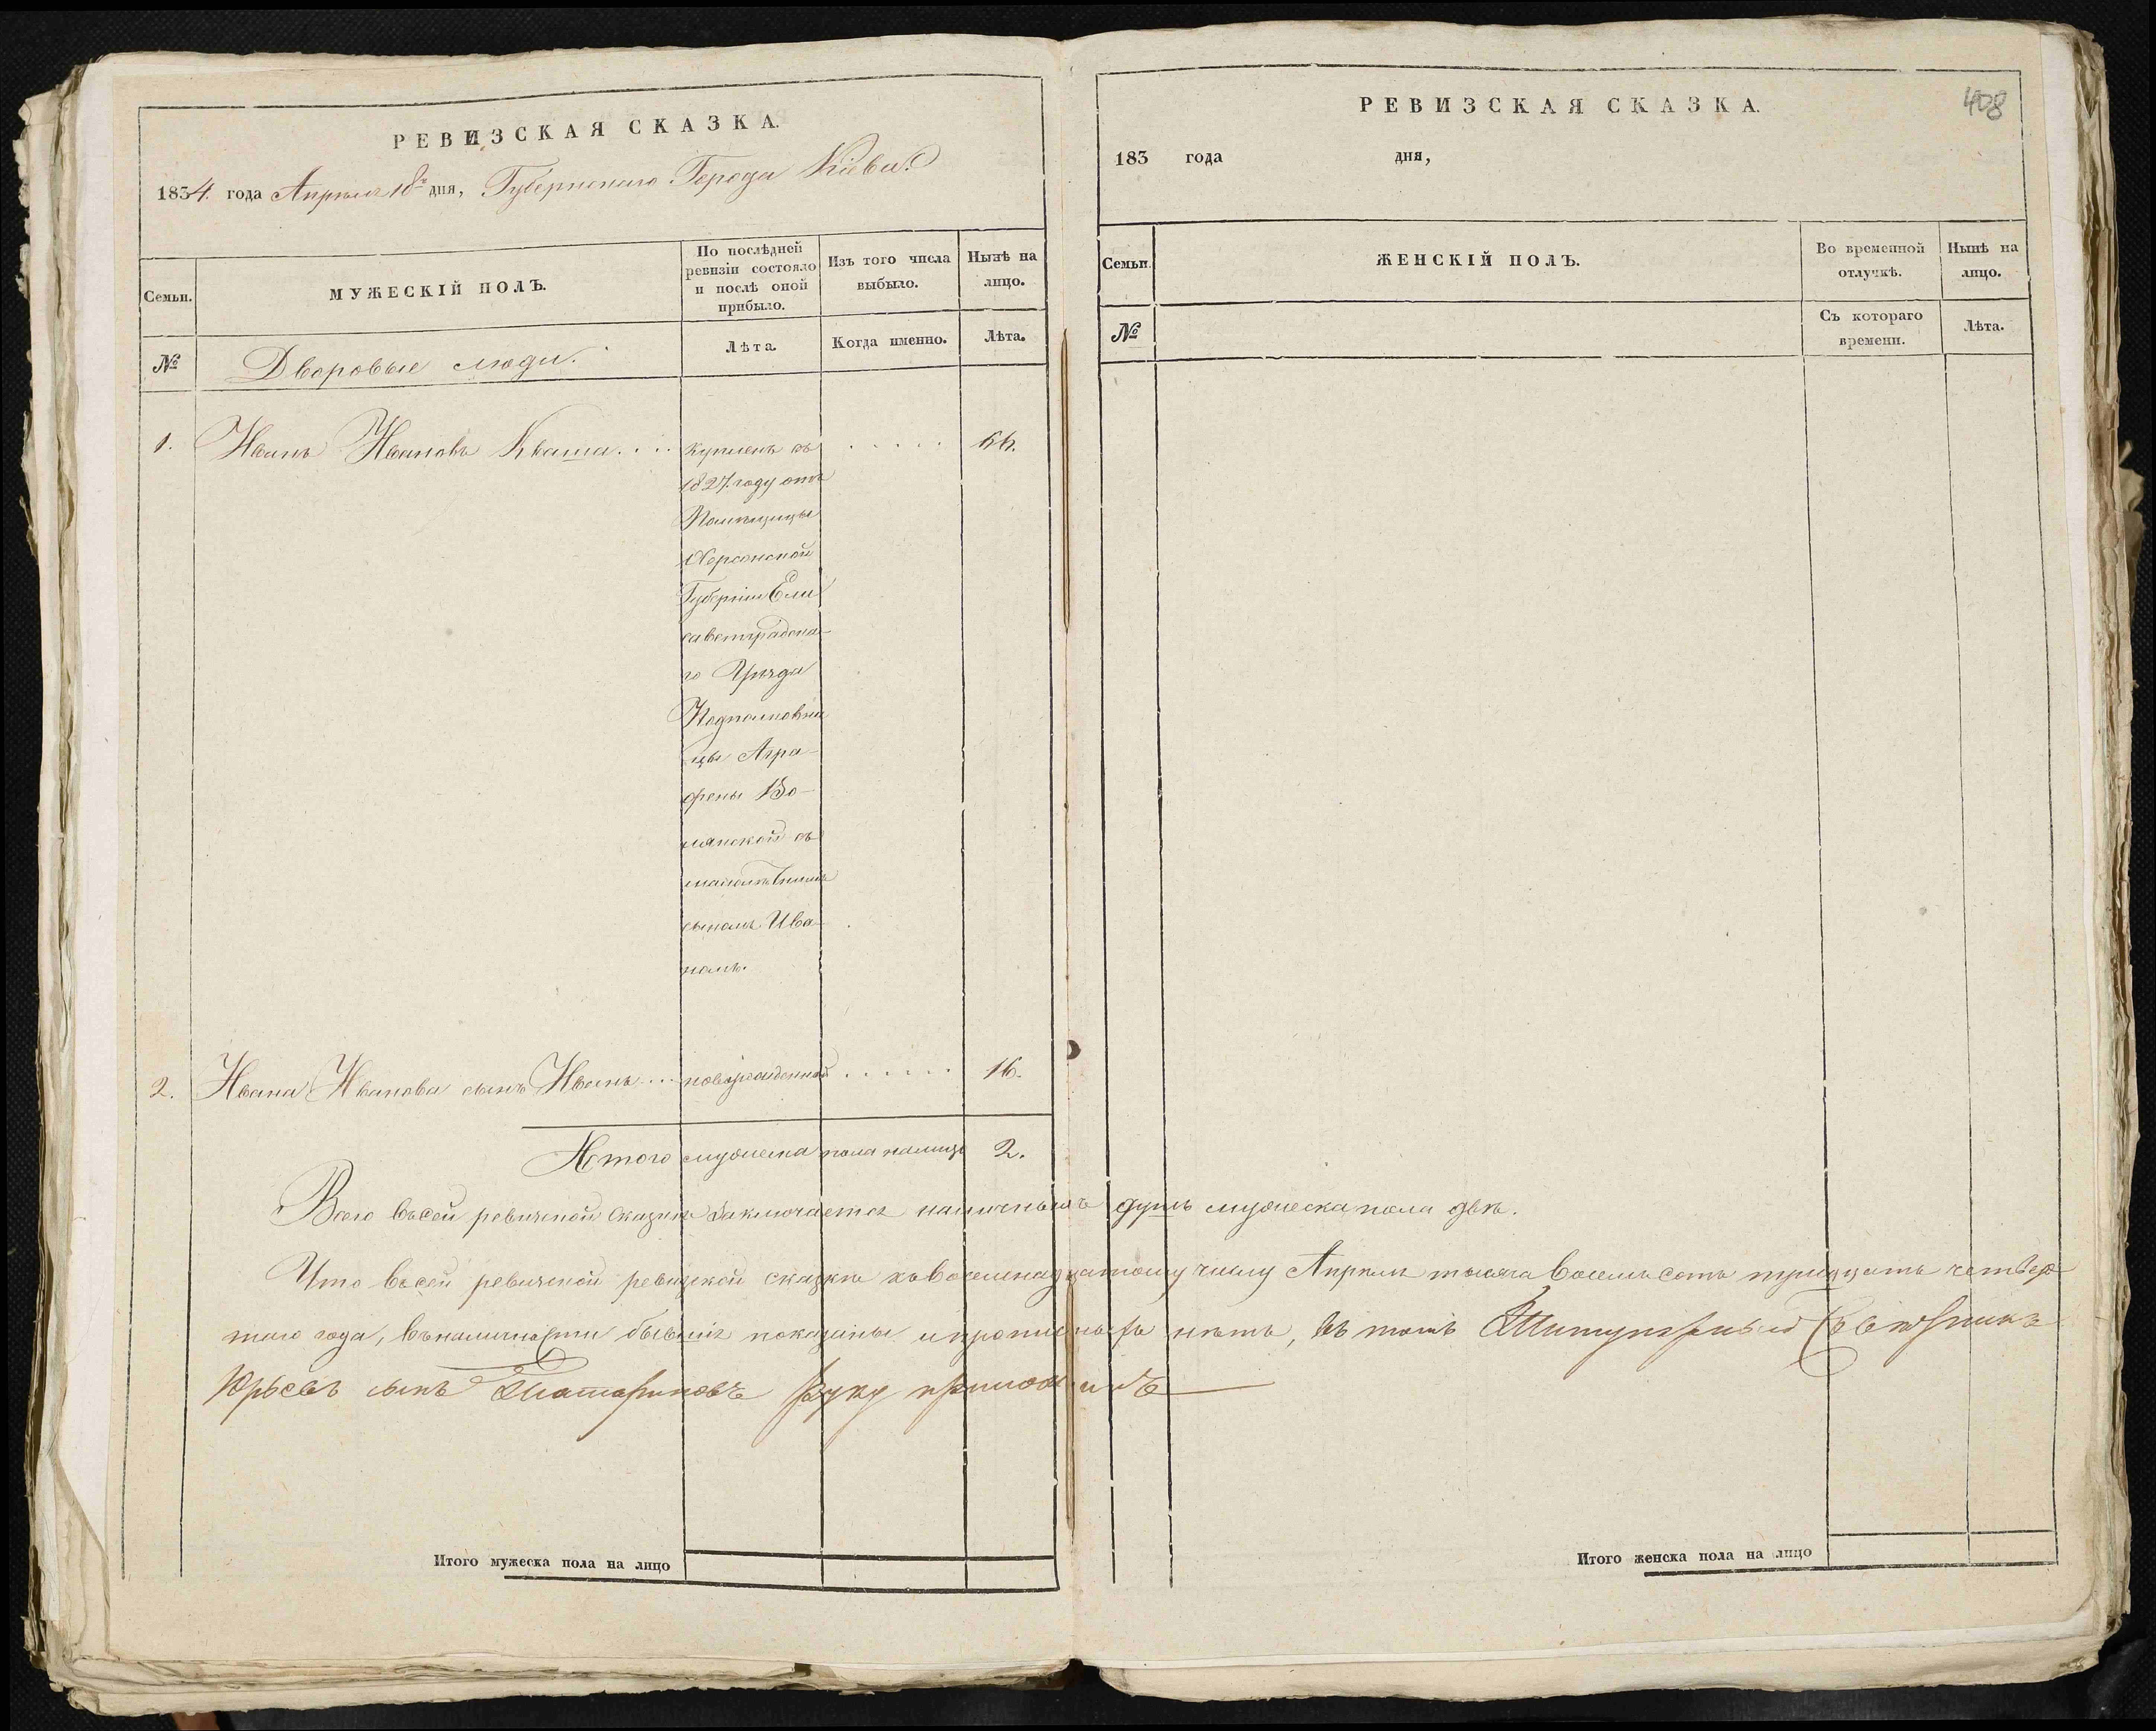 РЕВИЗСКАЯ СКАЗКА.
1834. года Апреля 18го дня, Губернскаго Города Кіева.
Семьи.
МУЖЕСКІЙ ПОЛЪ.
По послѣдней ревизіи состояло и послѣ оной прибыло.
Изъ того числа выбыло.
Нынѣ на лицо.
№
Дворовые люди.
Лѣта.
Когда именно.
Лѣта.
1. Иванъ Ивановъ Кваша.... купленъ въ ..... 66.
1827. году отъ
Помѣщицы
Херсонской
Губерніи Ели
саветградска-
го Уѣзда
Подполковни
цы Агра-
фены Во-
лянской съ
малолѣтнимъ
сыномъ Ива-
номъ.
2. Ивана Иванова сынъ Иванъ... новорожденной ...... 16.
Итого мужеска пола налицо 2.
Всего въсей ревизской Сказкѣ Заключается наличныхъ душъ мужеска пола двѣ.
Что въсей ревизской сказкѣ къвосемнадцатому числу Апрѣля тысяча восемь сотъ тридцать четвер
таго года, въналичности бывшія показаны ипрописныхъ нѣтъ, въ томъ Титулярный Совѣтникъ
Юрьевъ сынъ руку приложилъ
Итого мужеска пола на лицо
РЕВИЗСКАЯ СКАЗКА.
408
183 года дня,
Семьи.
ЖЕНСКІЙ ПОЛЪ.
Во временной отлучкѣ.
Нынѣ на лицо.
№
Съ котораго времени.
Лѣта.
Итого женска пола на лицо